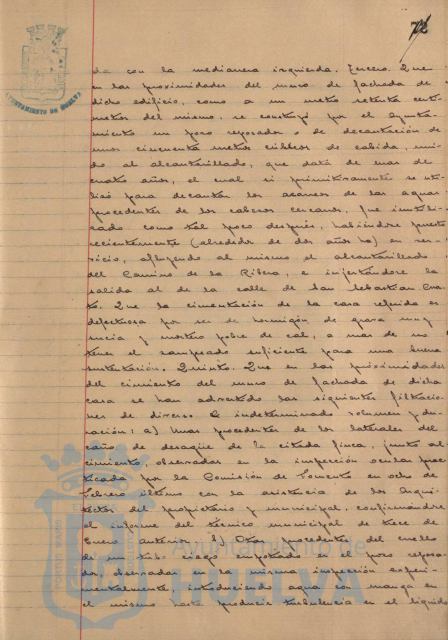 72
AYUNTAMIENTO DE HUELVA
da con la medianera izquierda. Tercero. Que
en las proximidades del muro de fachada de
dicho edificio, como a un metro setenta centí-
metros del mismo, se construyó por el Ayunta-
miento un pozo reposador o de decantación de
unos cincuenta metros cúbicos de cabida, uni-
do al alcantarillado, que data de mas de
cuatro años, el cual si primitivamente se uti-
lizó para decantar los acarreos de las aguas
procedentes de los cabezos cercanos, fue inutili-
zado como tal poco después, habiéndose puesto
recientemente (alrededor de dos años ha) en ser-
vicio, afluyendo al mismo el alcantarillado
del Camino de la Ribera, e injertándose la
salida al de la calle de San Sebastián. Cuar-
to. Que la cimentación de la casa referida es
defectuosa por ser de hormigón de grava muy
sucia y mortero pobre de cal, a mas de no
tener el zampeado suficiente para una buena
sustentación. Quinto. Que en las proximidades
del cimiento del muro de fachada de dicha
casa se han advertido las siguientes filtracio-
nes de diverso e indeterminado volumen y du-
ración: a) Unas procedentes de los laterales del
caño de desagüe de la citada finca, junto al
cimiento, observadas en la inspección ocular prac-
ticada por la Comisión de Fomento en ocho de
Febrero último con la asistencia de los Arqui-
tectos del propietario y municipal, confirmándose
el informe del técnico municipal de trece de
Enero anterior. b) Otras procedentes del cuello
de un tubo ciego empotrado en el pozo reposa-
dor, observadas en la misma inspección experi-
mentalmente, introduciendo agua con manga en
el mismo hasta producir turbulencia en el líquido
Ayuntamiento de
HUELVA